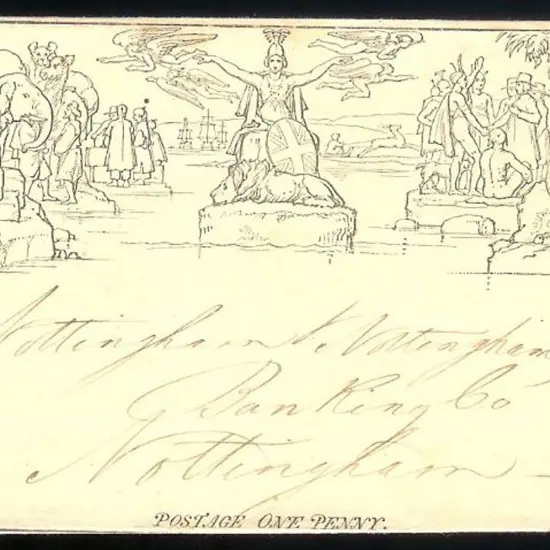 Nottingham & Nottingham
Banking Co
Nottingham
POSTAGE ONE PENNY.